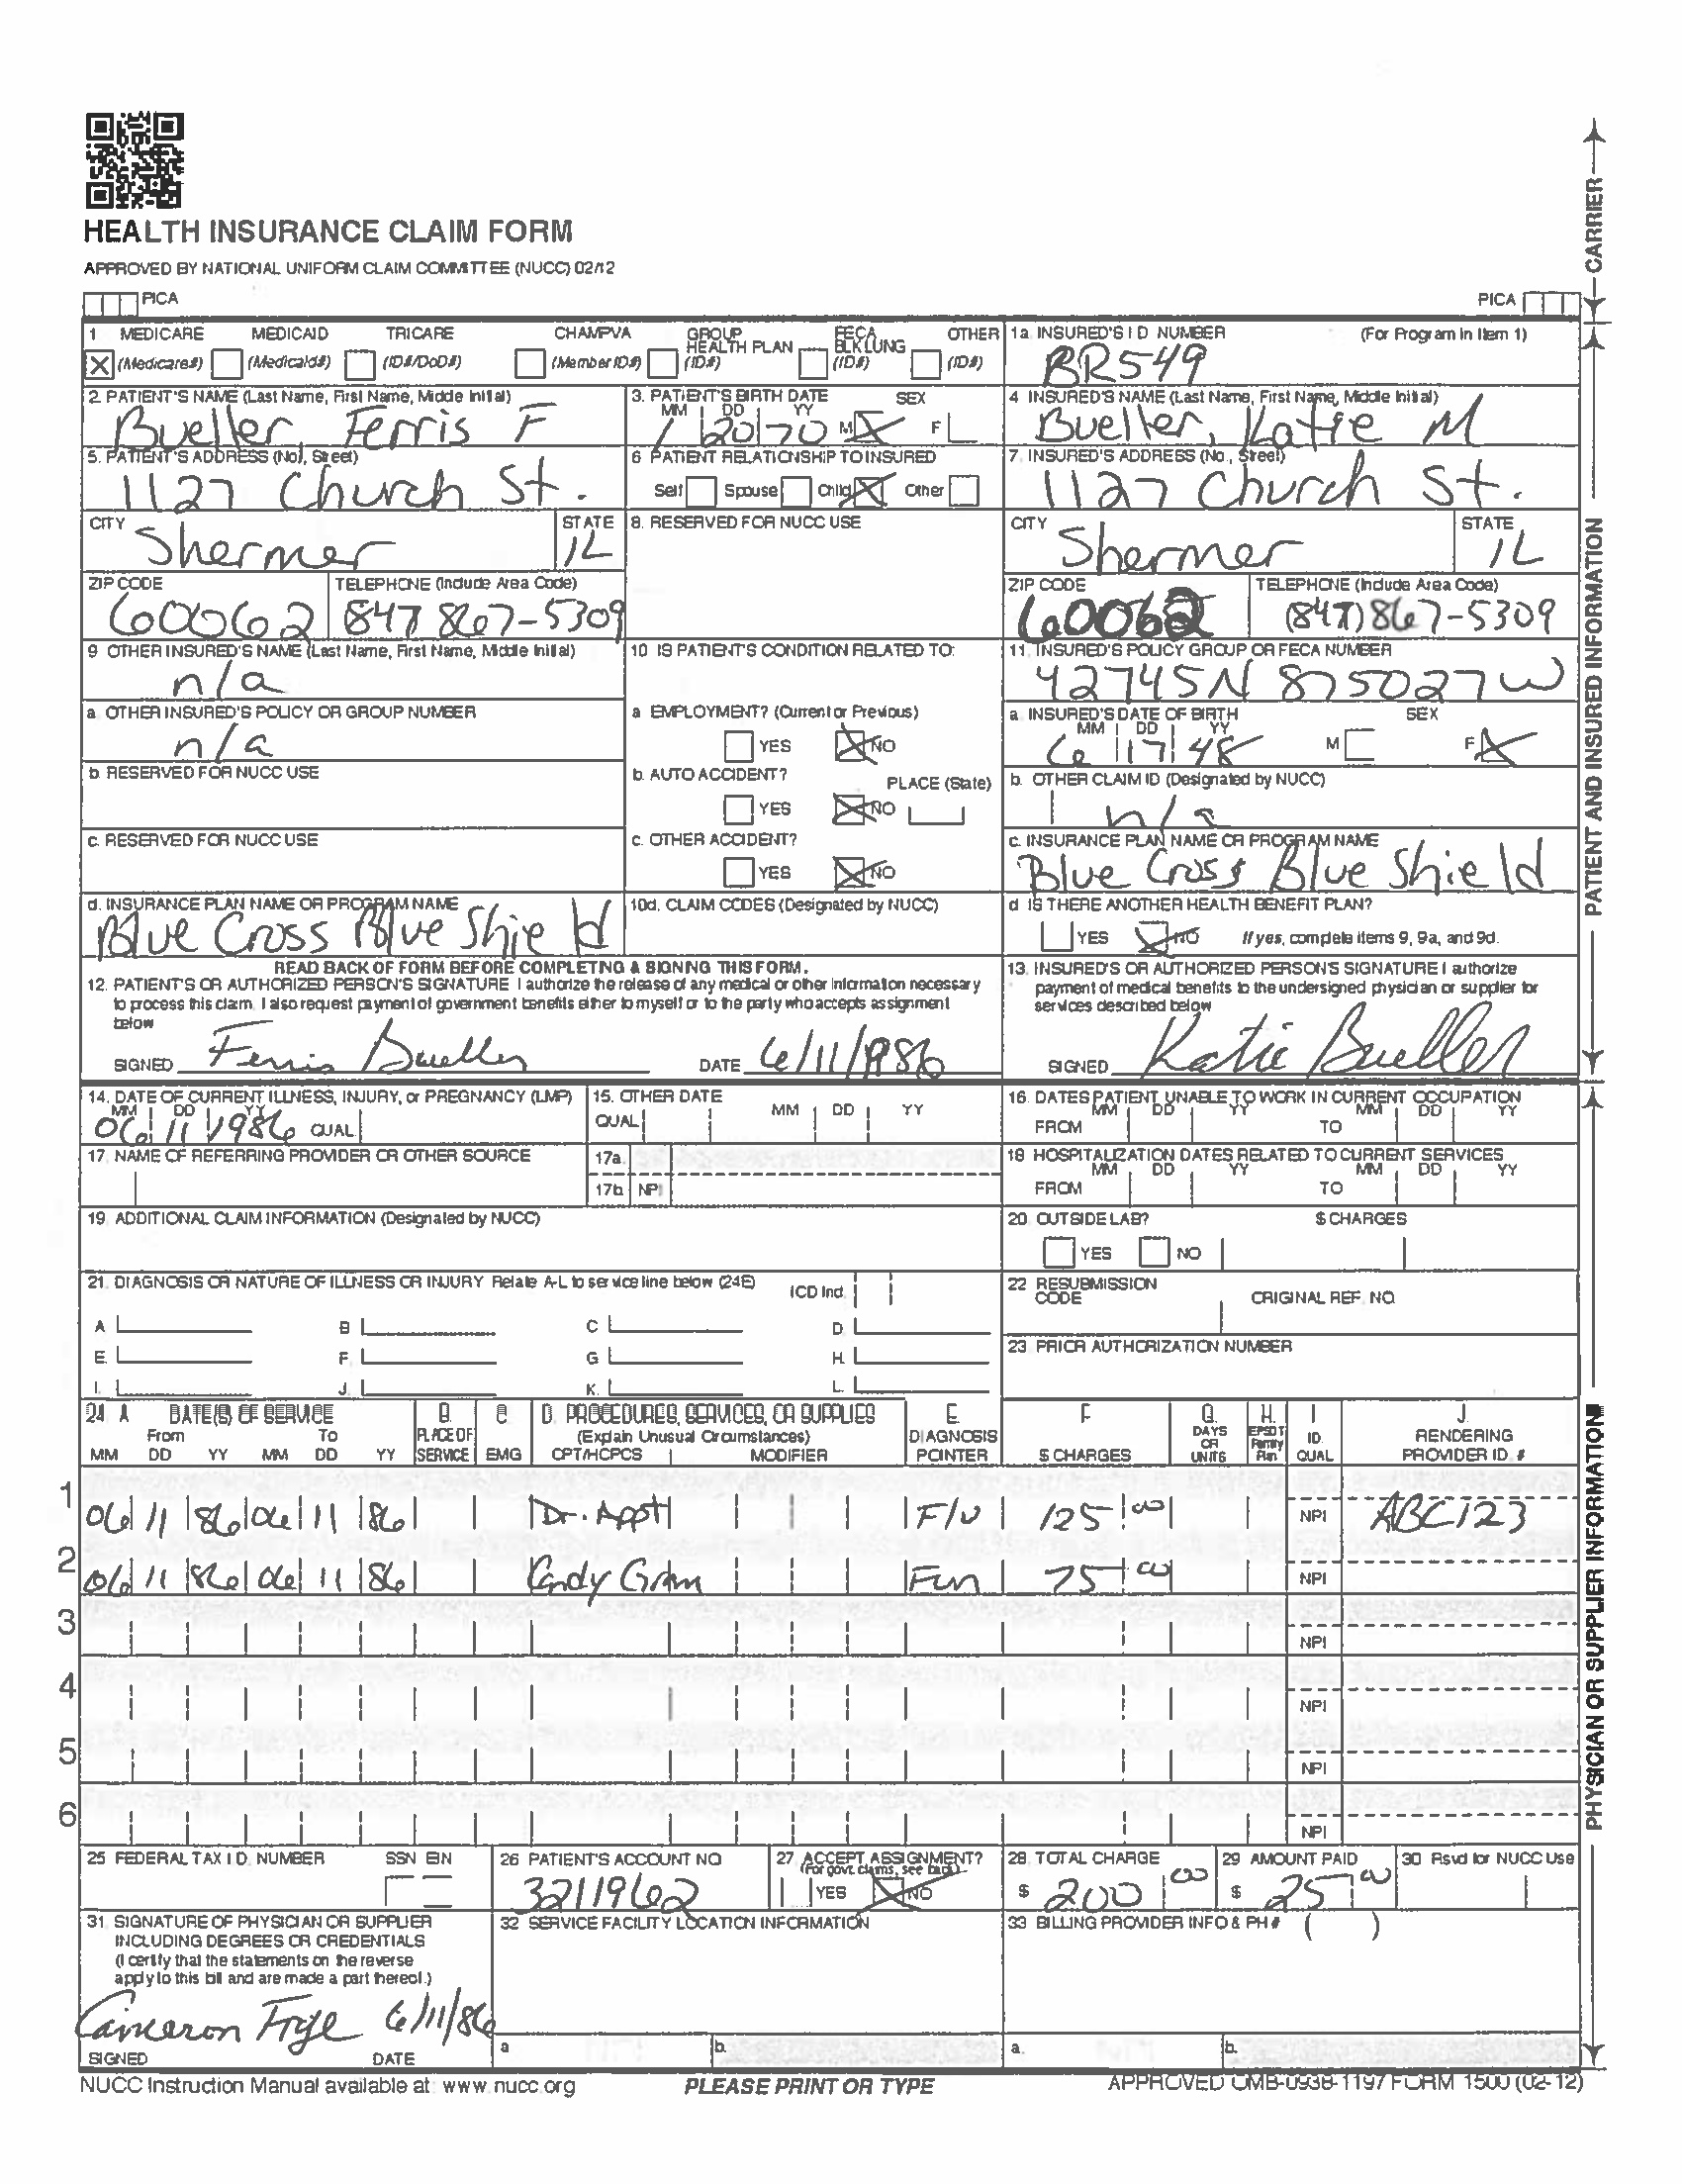 HEALTH INSURANCE CLAIM FORM
APPROVED BY NATIONAL UNIFORM CLAIM COMMITTEE (NUCC) 02/12
PICA PICA
CARRIER
1 MEDICARE MEDICAID TRICARE CHAMPVA GROUP HEALTH PLAN FECA BLK LUNG OTHER
(Medicare#) (Medicaid#) (ID#/DoD#) (Member ID#) (ID#) (ID#) (ID#)
1a. INSURED'S I D NUMBER (For Program in Item 1)
BR549
2. PATIENT'S NAME (Last Name, First Name, Middle Initial)
Bueller, Ferris F
3. PATIENT'S BIRTH DATE SEX
MM DD YY
1 20 70 M X F
4 INSURED'S NAME (Last Name, First Name, Middle Initial)
Bueller, Katie M
5. PATIENT'S ADDRESS (No., Street)
1127 Church St.
6 PATIENT RELATIONSHIP TO INSURED
Self Spouse Child X Other
7. INSURED'S ADDRESS (No., Street)
1127 Church St.
CITY STATE
Shermer IL
8. RESERVED FOR NUCC USE
CITY STATE
Shermer IL
ZIP CODE TELEPHONE (Include Area Code)
60062 847 867-5309
ZIP CODE TELEPHONE (Include Area Code)
60062 (847) 867-5309
9 OTHER INSURED'S NAME (Last Name, First Name, Middle Initial)
n/a
10 IS PATIENT'S CONDITION RELATED TO:
11. INSURED'S POLICY GROUP OR FECA NUMBER
42745N 875027W
a. OTHER INSURED'S POLICY OR GROUP NUMBER
n/a
a EMPLOYMENT? (Current or Previous)
YES X NO
a. INSURED'S DATE OF BIRTH SEX
MM DD YY
6 17 48 M F X
b. RESERVED FOR NUCC USE
b. AUTO ACCIDENT? PLACE (State)
YES X NO
b. OTHER CLAIM ID (Designated by NUCC)
n/a
c. RESERVED FOR NUCC USE
c. OTHER ACCIDENT?
YES X NO
c. INSURANCE PLAN NAME OR PROGRAM NAME
Blue Cross Blue Shield
d. INSURANCE PLAN NAME OR PROGRAM NAME
Blue Cross Blue Shield
10d. CLAIM CODES (Designated by NUCC)
d IS THERE ANOTHER HEALTH BENEFIT PLAN?
YES X NO If yes, complete items 9, 9a, and 9d.
PATIENT AND INSURED INFORMATION
READ BACK OF FORM BEFORE COMPLETING & SIGNING THIS FORM.
12. PATIENT'S OR AUTHORIZED PERSON'S SIGNATURE I authorize the release of any medical or other information necessary
to process this claim. I also request payment of government benefits either to myself or to the party who accepts assignment
below
SIGNED Ferris Bueller DATE 6/11/1986
13. INSURED'S OR AUTHORIZED PERSON'S SIGNATURE I authorize
payment of medical benefits to the undersigned physician or supplier for
services described below
SIGNED Katie Bueller
14. DATE OF CURRENT ILLNESS, INJURY, or PREGNANCY (LMP)
MM DD YY
06 11 1986 QUAL
15. OTHER DATE
QUAL MM DD YY
16. DATES PATIENT UNABLE TO WORK IN CURRENT OCCUPATION
MM DD YY MM DD YY
FROM TO
17. NAME OF REFERRING PROVIDER OR OTHER SOURCE
17a.
17b. NPI
18 HOSPITALIZATION DATES RELATED TO CURRENT SERVICES
MM DD YY MM DD YY
FROM TO
19. ADDITIONAL CLAIM INFORMATION (Designated by NUCC)
20. OUTSIDE LAB? $ CHARGES
YES NO
21. DIAGNOSIS OR NATURE OF ILLNESS OR INJURY Relate A-L to service line below (24E) ICD Ind.
A B C D.
E. F. G H.
I. J. K. L.
22 RESUBMISSION
CODE ORIGINAL REF. NO.
23. PRIOR AUTHORIZATION NUMBER
24. A DATE(S) OF SERVICE B. C. D. PROCEDURES, SERVICES, OR SUPPLIES E. F. G. H. I. J.
From To PLACE OF (Explain Unusual Circumstances) DIAGNOSIS DAYS OR EPSDT Family ID. RENDERING
MM DD YY MM DD YY SERVICE EMG CPT/HCPCS MODIFIER POINTER $ CHARGES UNITS Plan QUAL PROVIDER ID. #
1 06 11 86 06 11 86 Dr. Appt F/U 125 00 NPI ABC123
2 06 11 86 06 11 86 Candy Gram Fun 75 00 NPI
3 NPI
4 NPI
5 NPI
6 NPI
PHYSICIAN OR SUPPLIER INFORMATION
25 FEDERAL TAX I.D. NUMBER SSN EIN
26 PATIENT'S ACCOUNT NO
3211962
27 ACCEPT ASSIGNMENT?
(For govt. claims, see back)
YES X NO
28. TOTAL CHARGE
$ 200 00
29 AMOUNT PAID
$ 25 00
30 Rsvd for NUCC Use
31. SIGNATURE OF PHYSICIAN OR SUPPLIER
INCLUDING DEGREES OR CREDENTIALS
(I certify that the statements on the reverse
apply to this bill and are made a part thereof.)
Cameron Frye 6/11/86
SIGNED DATE
32 SERVICE FACILITY LOCATION INFORMATION
a b.
33 BILLING PROVIDER INFO & PH # ( )
a. b.
NUCC Instruction Manual available at: www.nucc.org PLEASE PRINT OR TYPE APPROVED OMB-0938-1197 FORM 1500 (02-12)